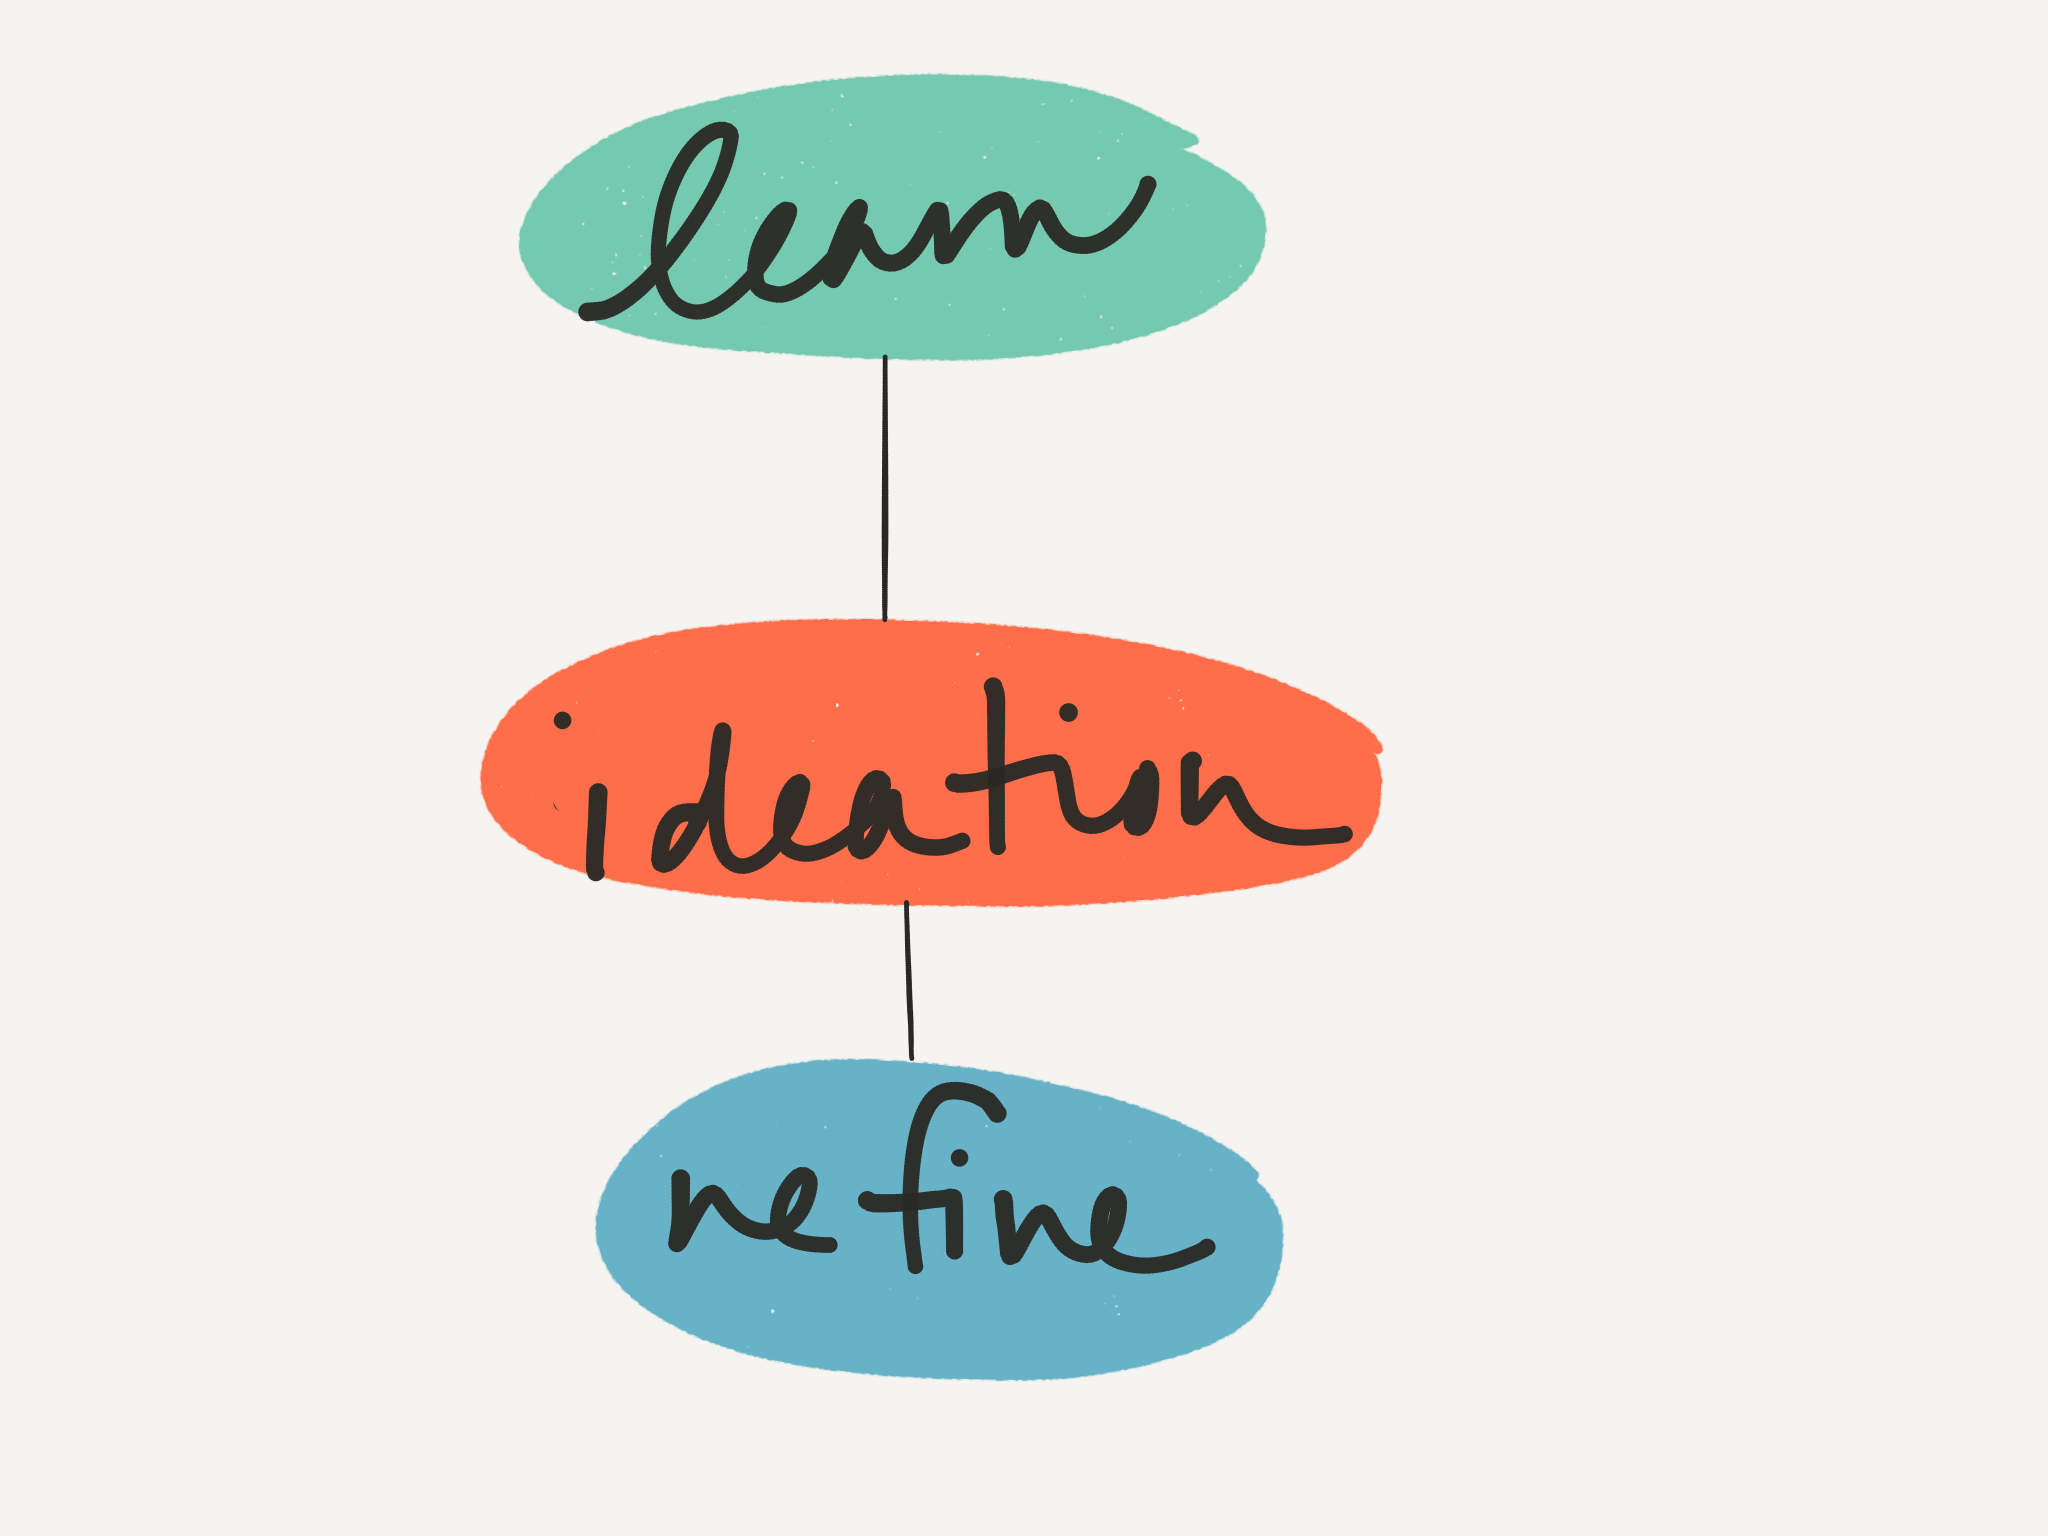 learn
ideation
refine